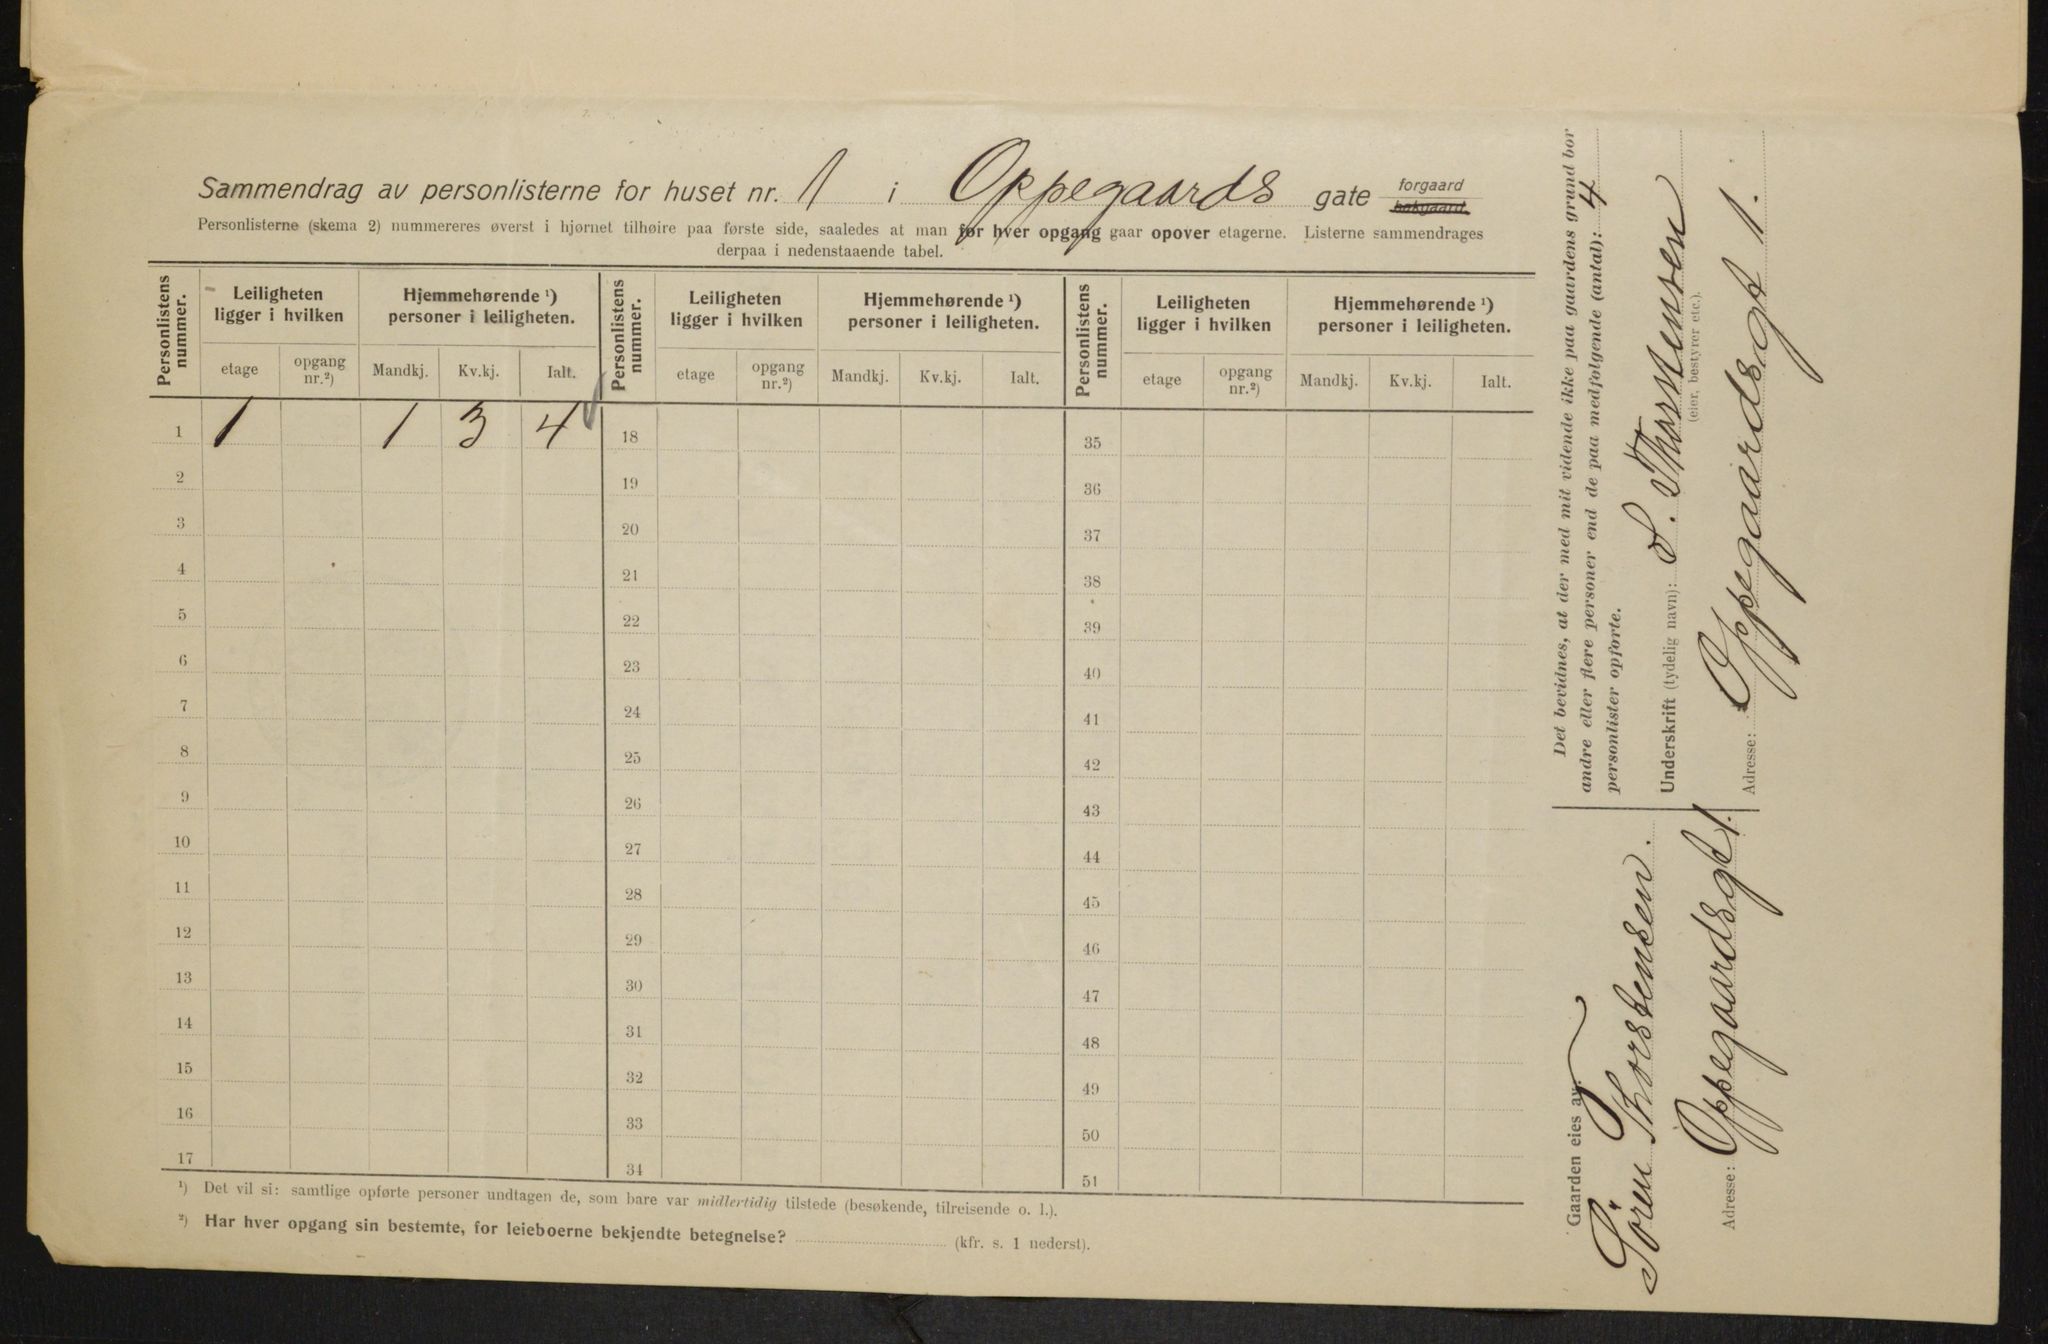 Sammendrag av personlisterne for huset nr. 1 i Oppegaards gate forgaard bakgaard
Personlisterne (skema 2) nummereres øverst i hjørnet tilhøire paa første side, saaledes at man for hver opgang gaar opover etagerne. Listerne sammendrages
derpaa i nedenstaaende tabel.
Personlistens nummer. Leiligheten ligger i hvilken Hjemmehørende ¹) personer i leiligheten. Personlistens nummer. Leiligheten ligger i hvilken Hjemmehørende ¹) personer i leiligheten. Personlistens nummer. Leiligheten ligger i hvilken Hjemmehørende ¹) personer i leiligheten.
etage opgang nr.²) Mandkj. Kv.kj. Ialt. etage opgang nr.²) Mandkj. Kv.kj. Ialt. etage opgang nr.²) Mandkj. Kv.kj. Ialt.
1 1 1 3 4 18 35
2 19 36
3 20 37
4 21 38
5 22 39
6 23 40
7 24 41
8 25 42
9 26 43
10 27 44
11 28 45
12 29 46
13 30 47
14 31 48
15 32 49
16 33 50
17 34 51
¹) Det vil si: samtlige opførte personer undtagen de, som bare var midlertidig tilstede (besøkende, tilreisende o. l.).
²) Har hver opgang sin bestemte, for leieboerne bekjendte betegnelse? (kfr. s. 1 nederst).
Det bevidnes, at der med mit vidende ikke paa gaardens grund bor
andre eller flere personer end de paa medfølgende (antal): 4
personlister opførte.
Underskrift (tydelig navn): S. Thorstensen
(eier, bestyrer etc.).
Adresse: Oppegaardsgt 1.
Gaarden eies av:
Sören Thorstensen.
Adresse: Oppegaardsgt 1.